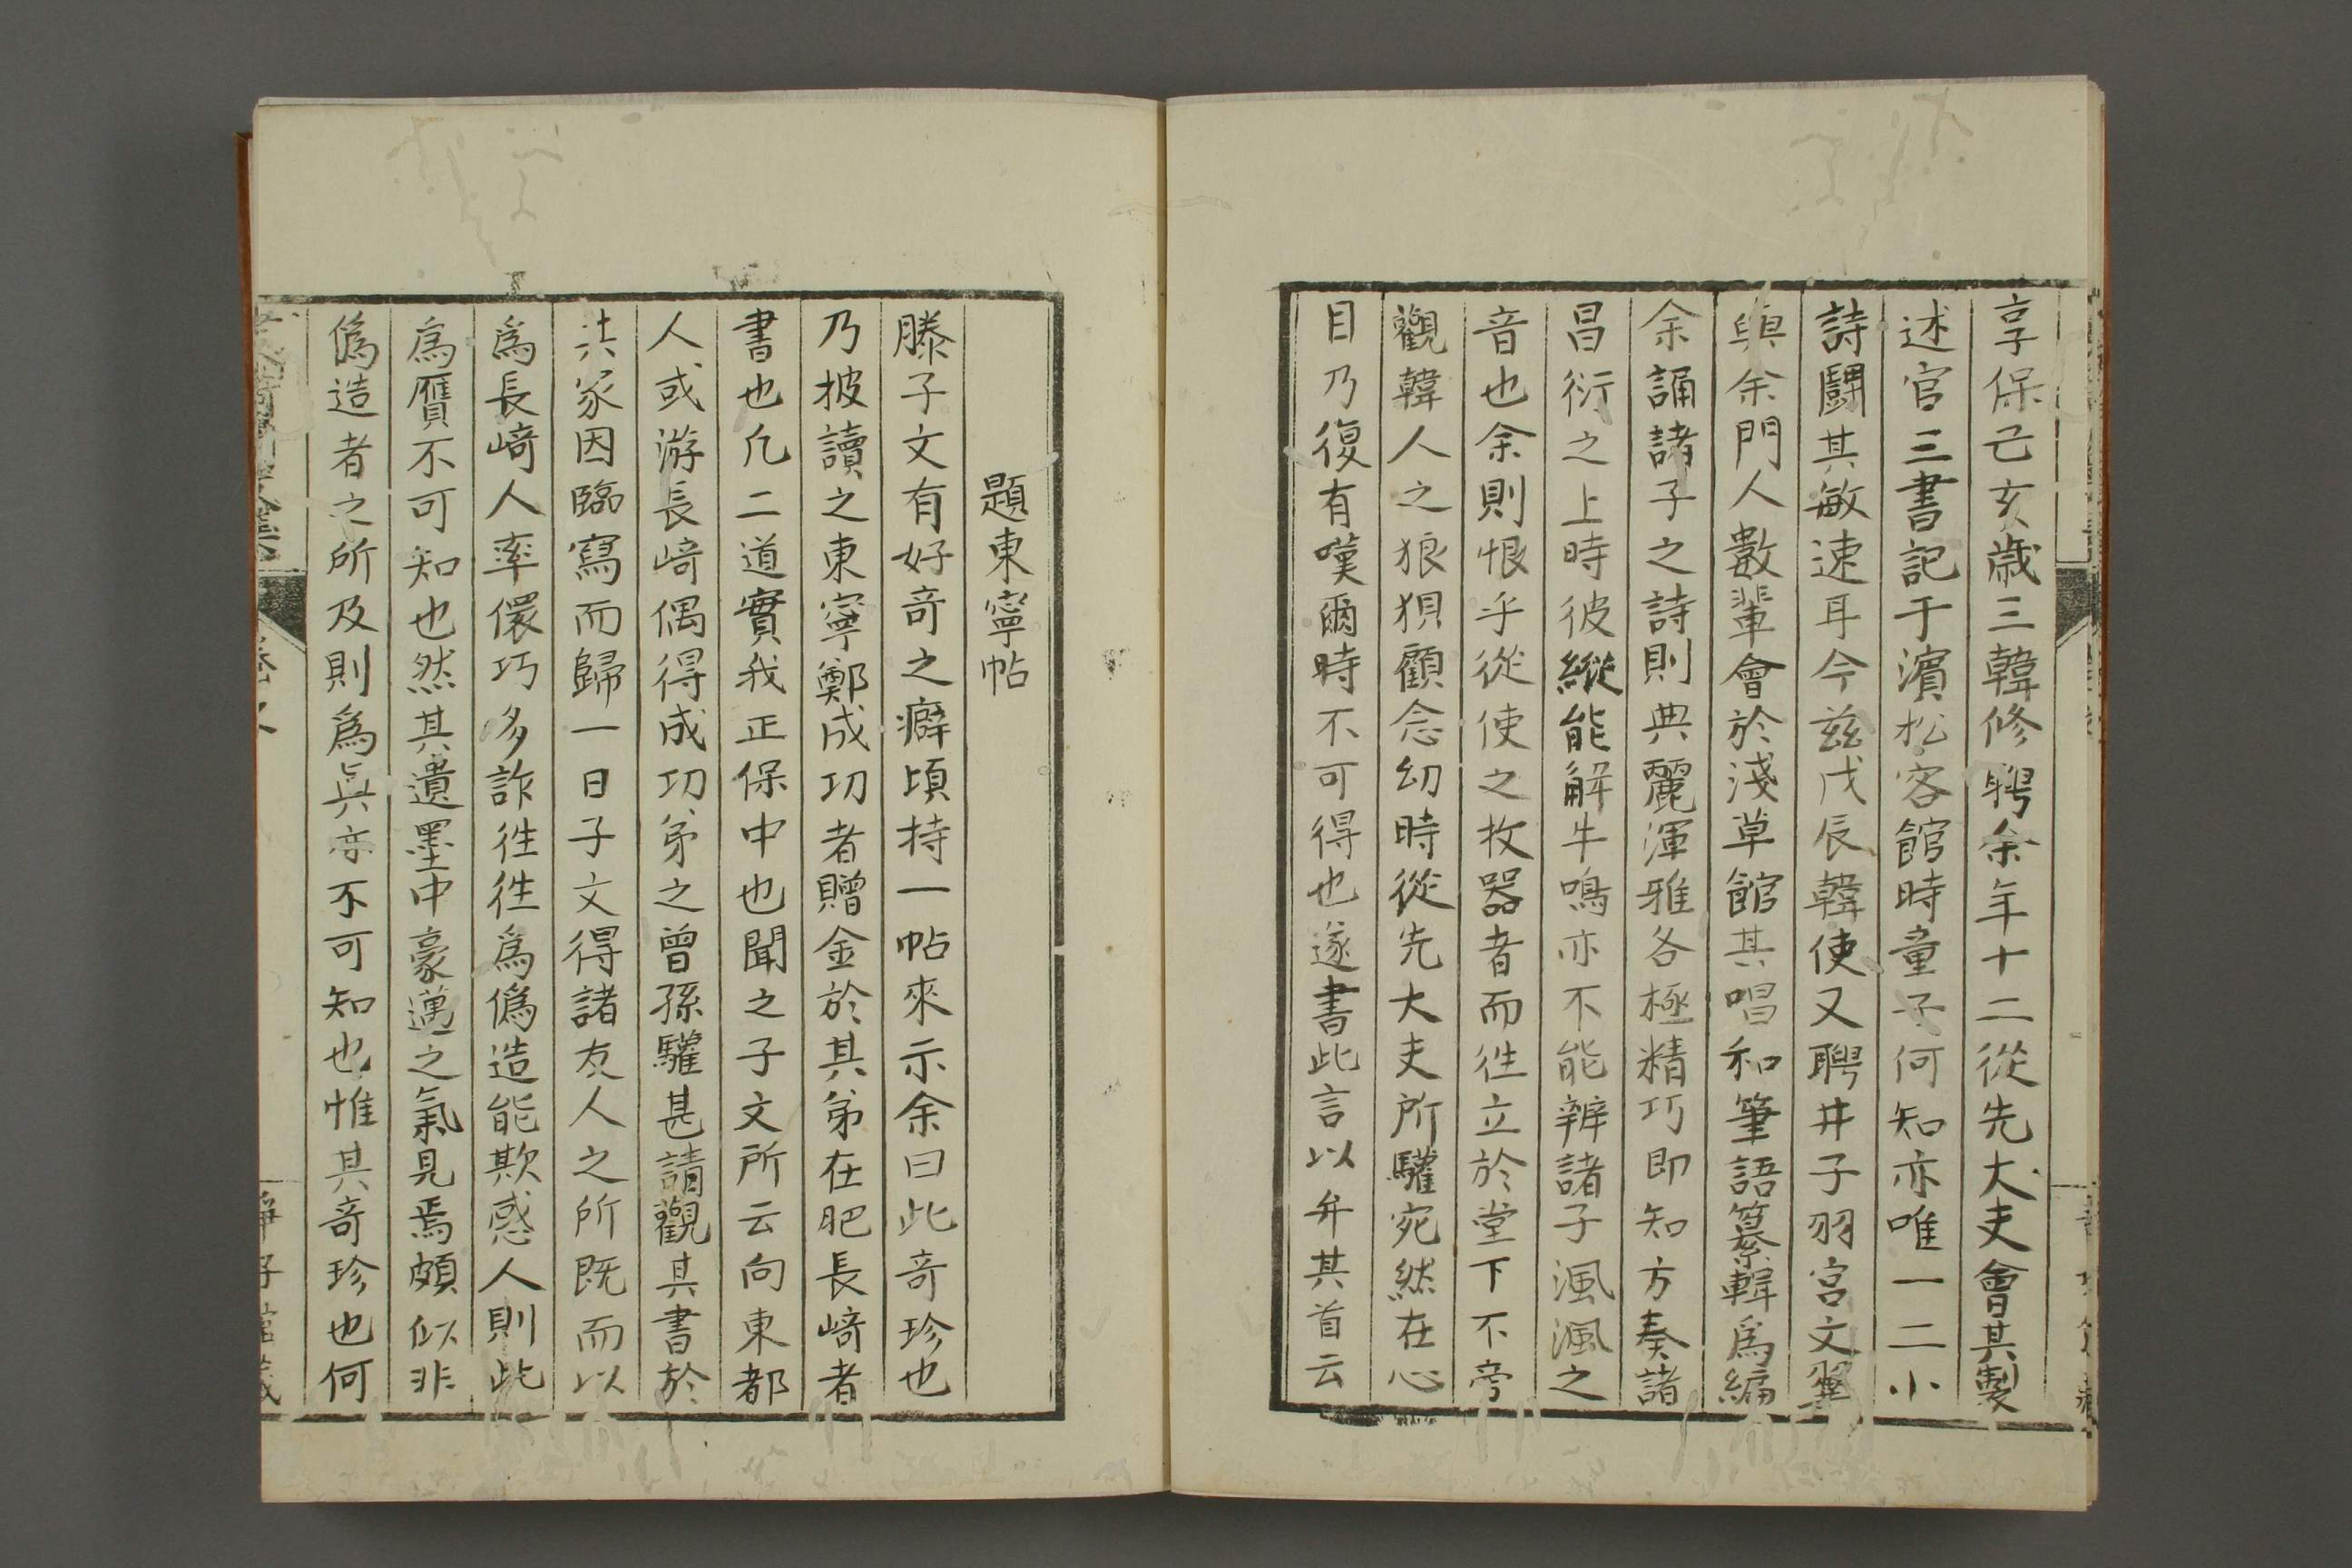 享保己亥歳三韓修聘余年十二從先大夫會其製
述官三書記于濵松客館時童子何知亦唯一二小
詩鬪其敏速耳今茲戊辰韓使又聘井子羽宮文翼
與余門人數輩會於淺草館其唱和筆語纂輯爲編
余誦諸子之詩則典麗渾雅各極精巧即知方奏諸
昌衍之上時彼縱能解牛鳴亦不能辨諸子渢渢之
音也余則恨乎從使之枚器者而徃立於堂下不旁
觀韓人之狼狽顧念幼時從先大夫所驩宛然在心
目乃復有嘆爾時不可得也遂書此言以弁其首云
題東寧帖
滕子文有好奇之癖頃持一帖來示余曰此奇珍也
乃披讀之東寧鄭成功者贈金於其弟在肥長﨑者
書也凢二道實我正保中也聞之子文所云向東都
人或游長﨑偶得成功弟之曾孫驩甚請觀其書於
其家因臨寫而歸一日子文得諸友人之所既而以
爲長﨑人率儇巧多詐徃徃爲僞造能欺惑人則此
爲贋不可知也然其遺墨中豪邁之氣見焉頗似非
僞造者之所及則爲眞亦不可知也惟其奇珍也何